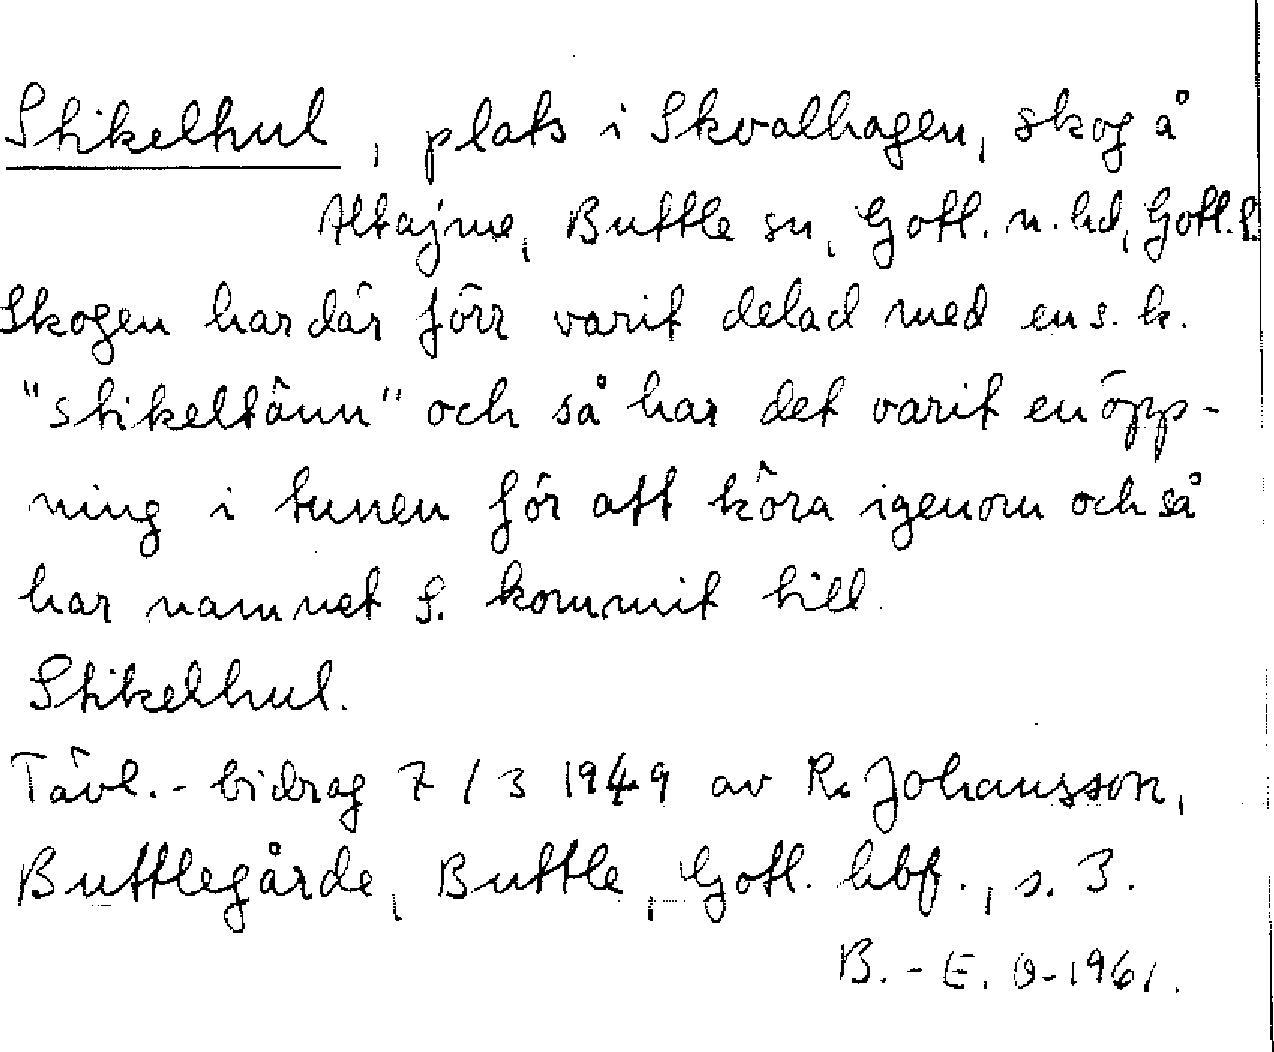 Stikelhul, plats i Skvalhagen, skog å
Altajme, Buttle sn, Gotl. n. hd, Gotl. l.
Skogen har där förr varit delad med en s. k.
"stikeltänn" och så har det varit en öpp-
ning i tunen för att köra igenom och så
har namnet S. kommit till.
Stikelhul.
Tävl.-bidrag 7/3 1949 av R. Johansson,
Buttlegårde, Buttle, Gotl. hbf., s. 3.
B.-E. O-1961.